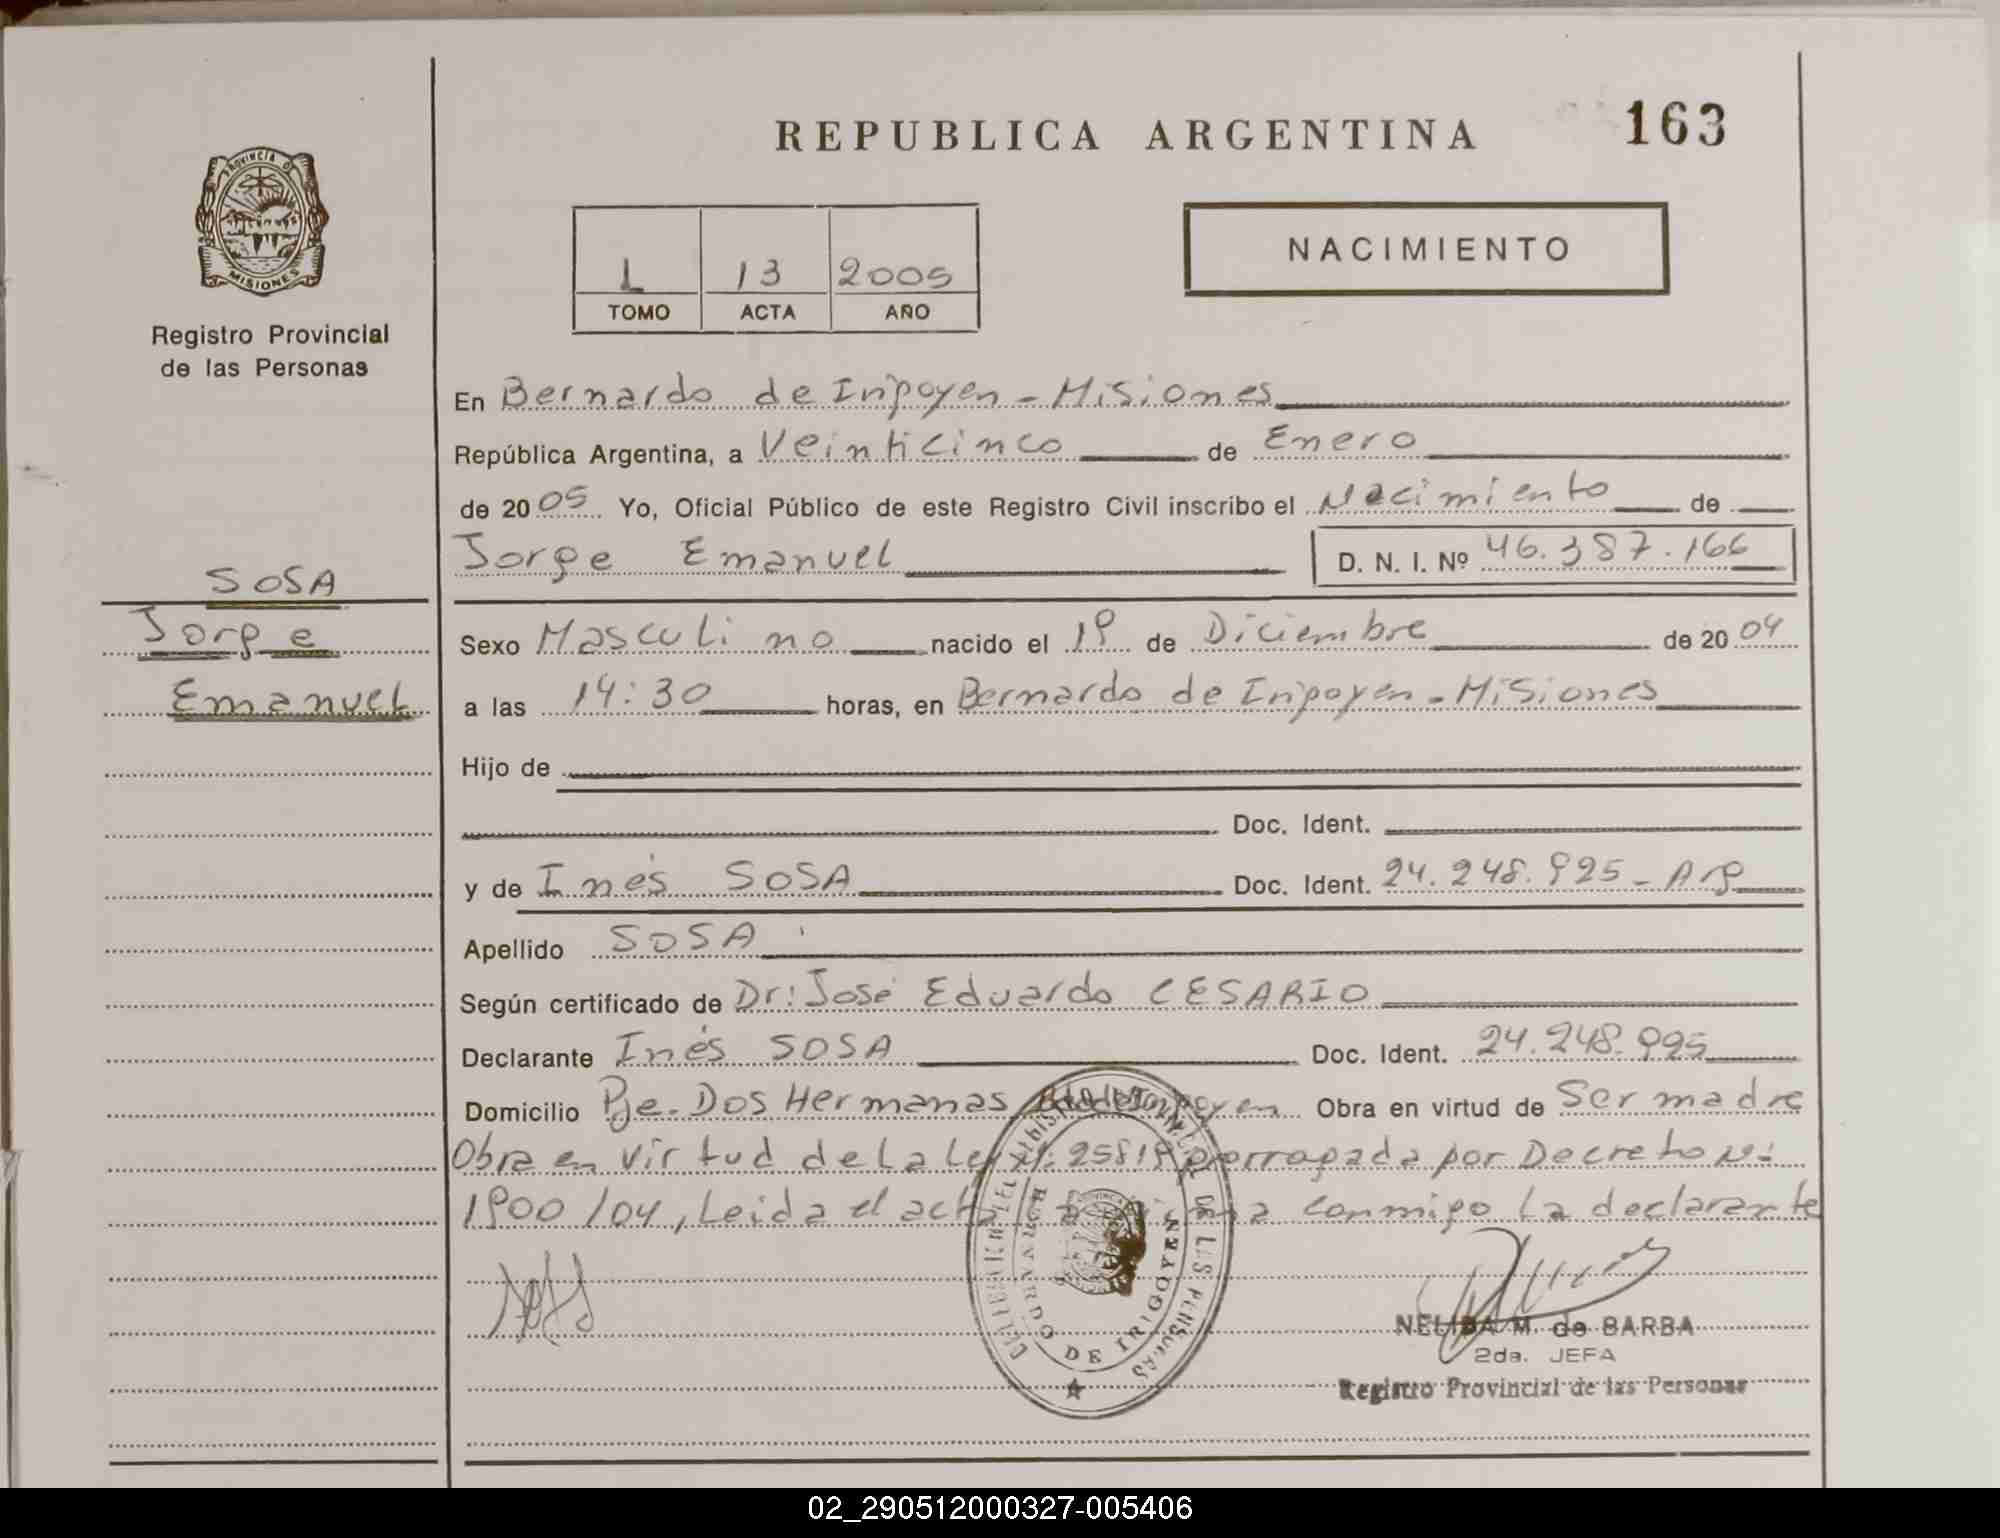 REPUBLICA ARGENTINA
163
PROVINCIA DE
MISIONES
Registro Provincial
de las Personas
L 13 2005
TOMO ACTA AÑO
NACIMIENTO
En Bernardo de Irigoyen - Misiones
República Argentina, a Veinticinco de Enero
de 2005 Yo, Oficial Público de este Registro Civil inscribo el Nacimiento de
Jorge Emanuel D. N. I. Nº 46.387.166
SOSA
Jorge
Emanuel
Sexo Masculino nacido el 19 de Diciembre de 2004
a las 14:30 horas, en Bernardo de Irigoyen - Misiones
Hijo de
Doc. Ident.
y de Inés SOSA Doc. Ident. 24.248.995 - Arg
Apellido SOSA
Según certificado de Dr: José Eduardo CESARIO
Declarante Inés SOSA Doc. Ident. 24.248.995
Domicilio Pje. Dos Hermanas Bdo de Irigoyen Obra en virtud de Ser madre
Obra en virtud de la Ley Nº: 25819 prorrogada por Decreto Nº:
1900/04, Leida el acta firma conmigo la declarante
BERNARDO DE IRIGOYEN
DE LAS PERSONAS
NELIDA M. de BARBA
2da. JEFA
Registro Provincial de las Personas
02_290512000327-005406